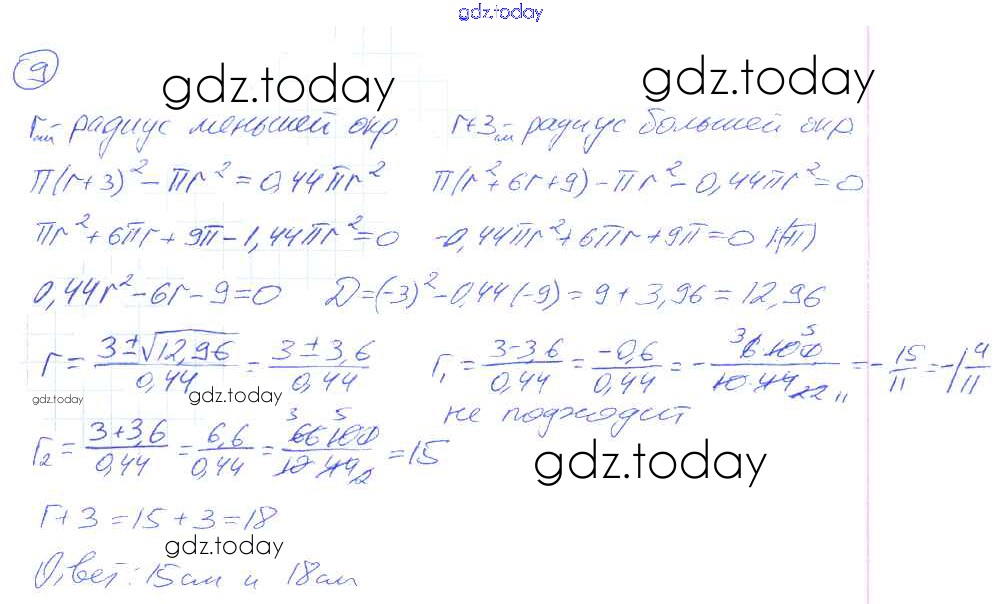 gdz.today
9
gdz.today gdz.today
r см – радиус меньшей окр. r+3 см – радиус большей окр.
π(r+3)² – πr² = 0,44πr² π(r²+6r+9) – πr² – 0,44πr² = 0
πr² + 6πr + 9π – 1,44πr² = 0 -0,44πr² + 6πr + 9π = 0 |:(-π)
0,44r² – 6r – 9 = 0 D = (-3)² – 0,44(-9) = 9 + 3,96 = 12,96
r = (3 ± √12,96)/0,44 = (3 ± 3,6)/0,44 r₁ = (3-3,6)/0,44 = -0,6/0,44 = -(6·100)/(10·44) = -15/11 = -1 4/11
gdz.today gdz.today не подходит
r₂ = (3+3,6)/0,44 = 6,6/0,44 = (66·100)/(10·44) = 15
gdz.today
r+3 = 15+3 = 18
gdz.today
Ответ: 15см и 18см